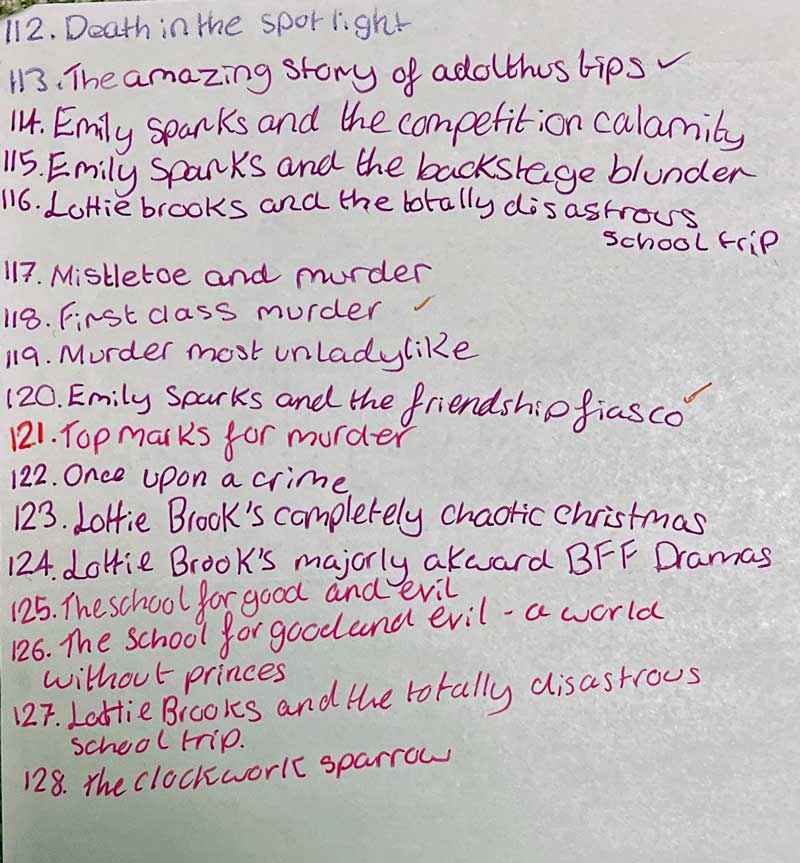 112. Death in the spotlight
113. The amazing story of adolthus tips ✓
114. Emily sparks and the competition calamity
115. Emily sparks and the backstage blunder
116. Lottie brooks and the totally disastrous
school trip
117. Mistletoe and murder
118. First class murder ✓
119. Murder most unladylike
120. Emily Sparks and the friendship fiasco ✓
121. Top marks for murder
122. Once upon a crime
123. Lottie Brook's completely chaotic christmas
124. Lottie Brook's majorly akward BFF Dramas
125. The school for good and evil
126. The school for good and evil - a world
without princes
127. Lottie Brooks and the totally disastrous
school trip.
128. the clockwork sparrow